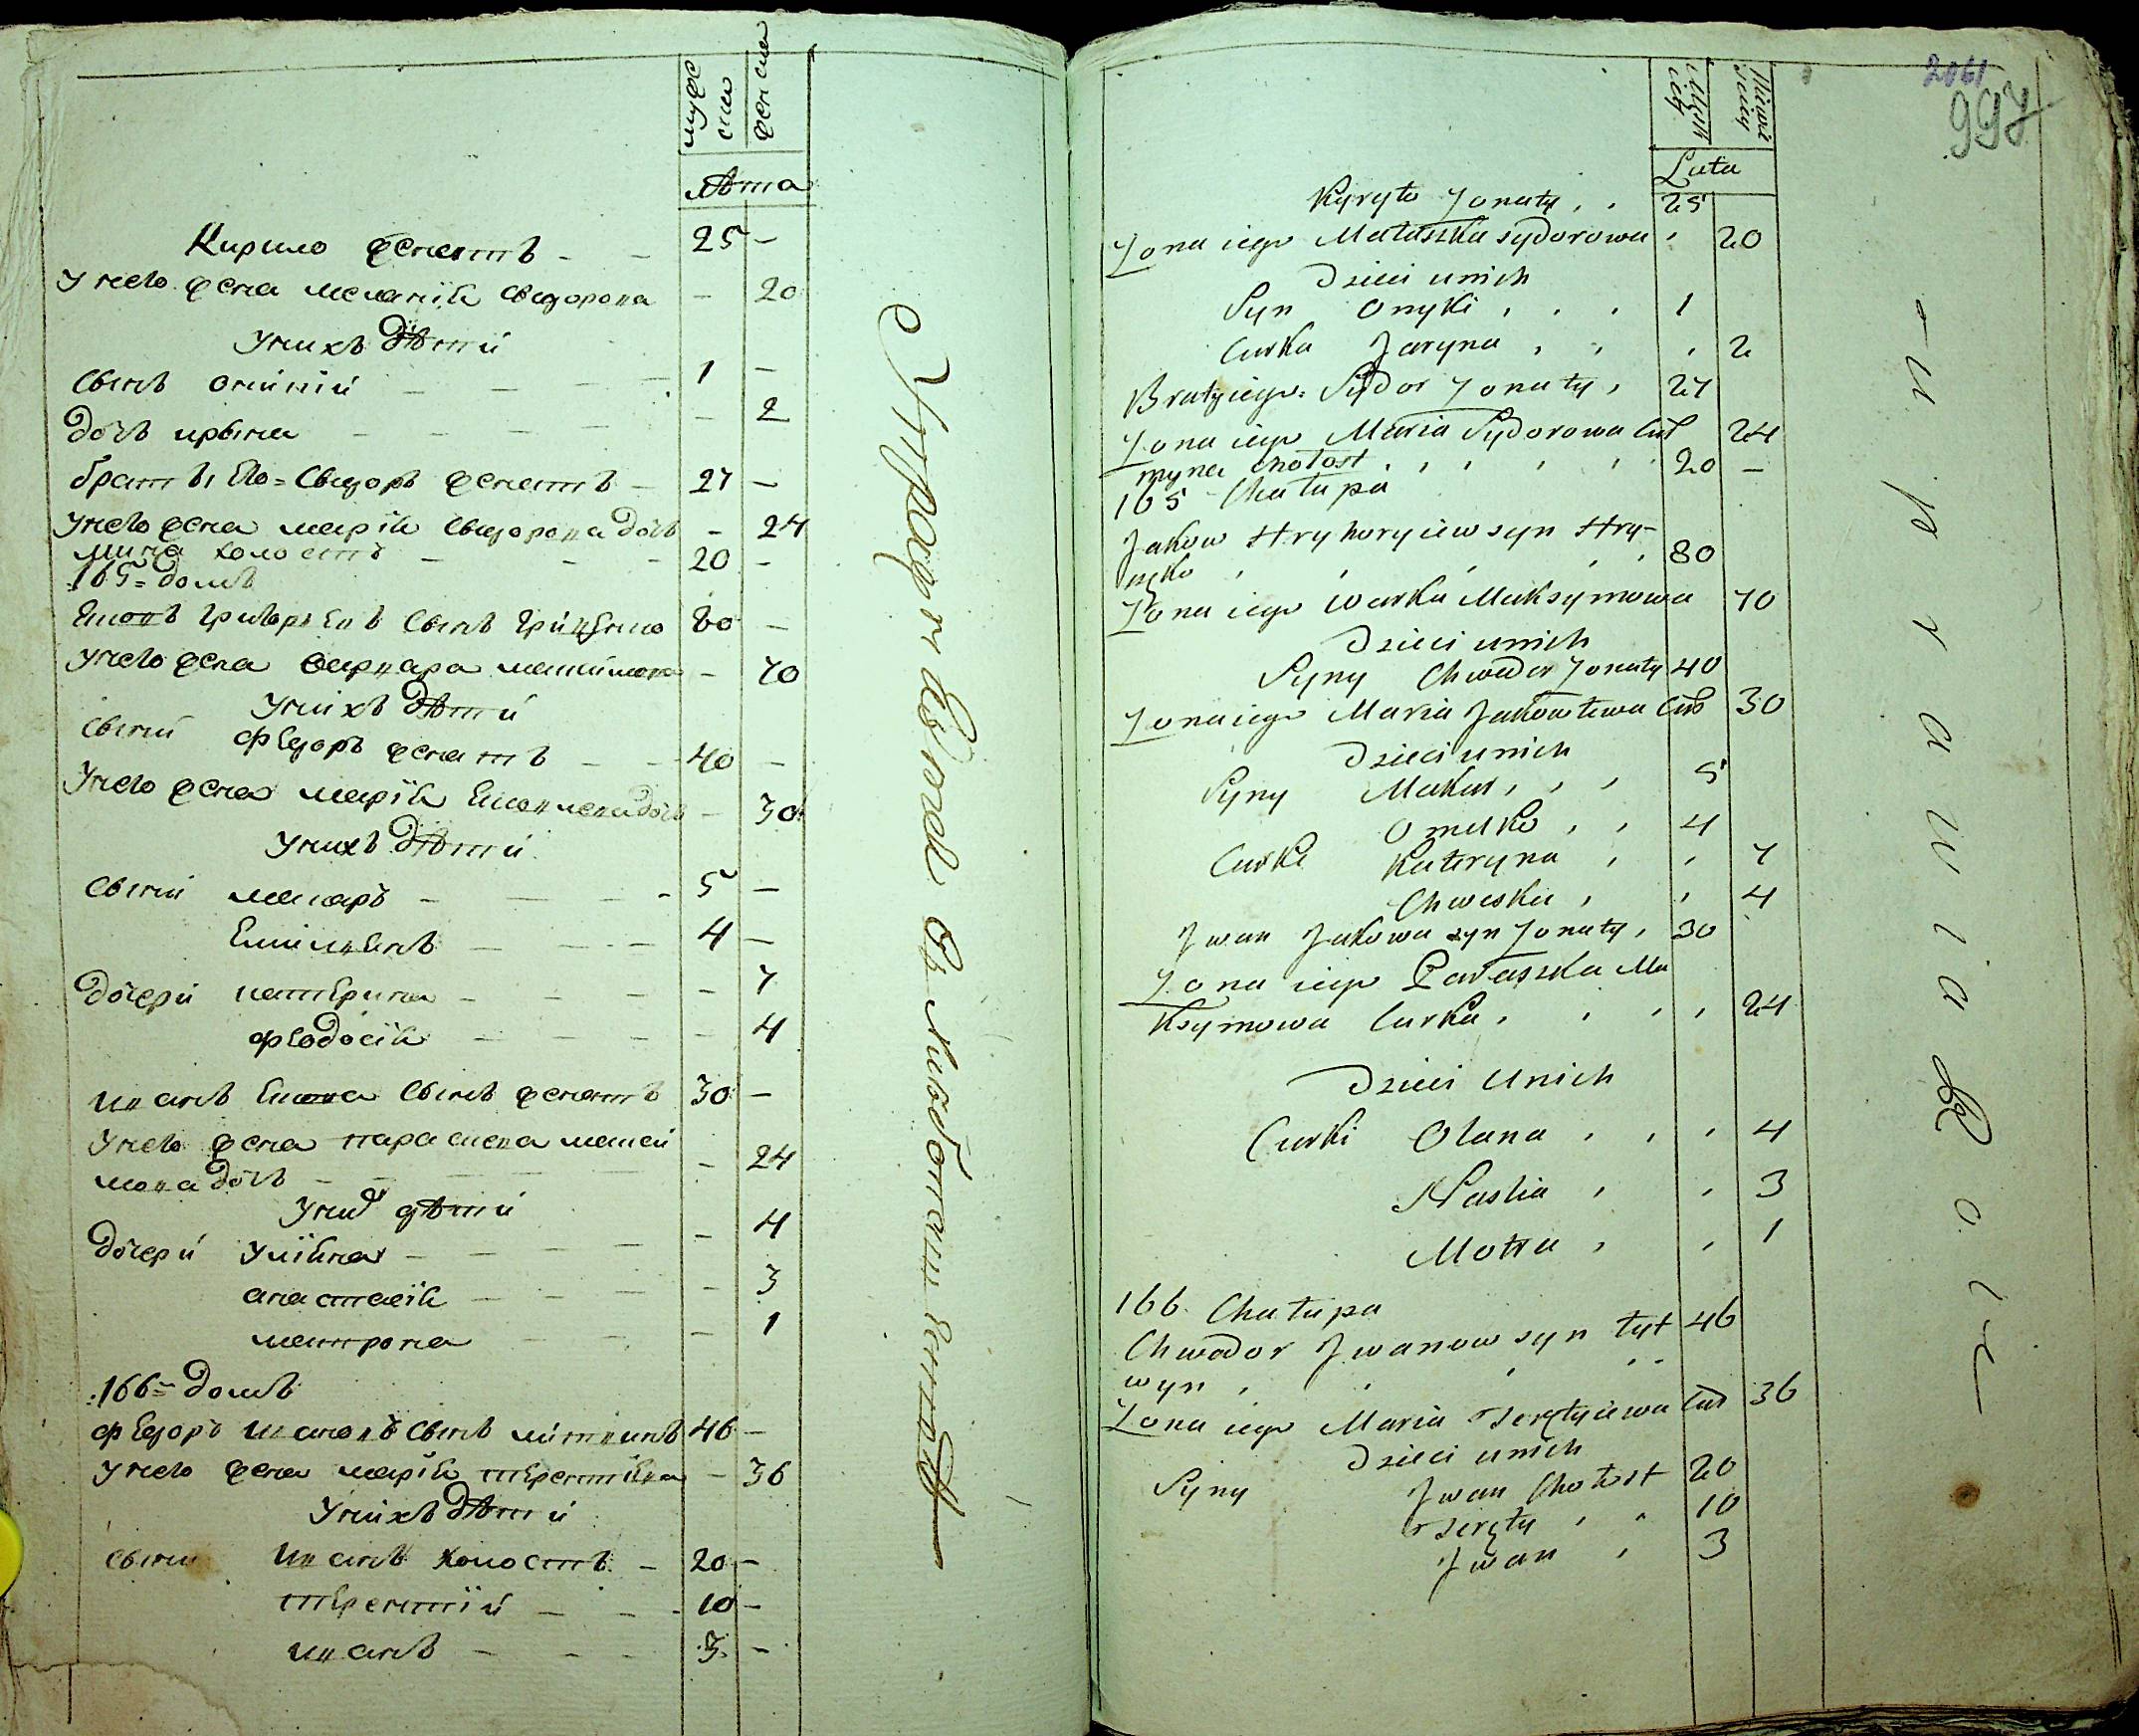 мужеска
женска
лѣта
Кирило женатъ 25 -
У него жена меланія Сидорова - 20
У нихъ дѣтей
Сынъ оникій 1 -
дочь ирына - 2
братъ его = Сыдоръ женатъ 27 -
У него жена марія Сыдорова дочь - 24
мина холостъ 20 -
165 = домъ
Яковъ григорьевъ Сынъ 80 -
У него жена варвара максимова - 70
У нихъ дѣтей
Сыны Федоръ женатъ 40 -
У него жена марія Яковлева дочь - 30
У нихъ дѣтей
Сыны макаръ 5 -
Емилиянъ 4 -
дочери катерина - 7
Феодосія - 4
иванъ Якова Сынъ женатъ 30 -
У него жена параскева макси
мова дочь - 24
У нихъ дѣтей
дочери Уліяна - 4
анастасія - 3
матрона - 1
166 = домъ
Федоръ ивановъ Сынъ литвинъ 46 -
У него жена марія терентіева - 36
У нихъ дѣтей
Сыны иванъ холостъ 20 -
терентій 10 -
иванъ 3 -
2061
997
Męzk
iey
Lata
Kyryło Żonaty 25
Żona iego Małaszka Sydorowa 20
Dzieci u nich
Syn Onyki 1
Curka Jaryna 2
Brat iego = Sydor Żonaty 27
Żona iego Maria Sydorowa Cur 24
myna Chołost 20 -
165 Chałupa
Jakow Hryhoryiew syn Hry-
cko 80
Żona iego Warka Maksymowa 70
Dzieci u nich
Syny Chwedor Żonaty 40
Żona iego Maria Jakowlewa Cur 30
Dzieci u nich
Syny Makar 5
Omelko 4
Curki Kateryna 7
Chweska 4
Jwan Jakowa syn Żonaty 30
Żona iego Paraszka Ma
Ksymowa Curka 24
Dzieci u nich
Curki Olana 4
Nastia 3
Motra 1
166 Chałupa
Chwedor Jwanow syn Łyt 46
wyn
Żona iego Maria Curka 36
Dzieci u nich
Syny Jwan Chołost 20
10
Jwan 3